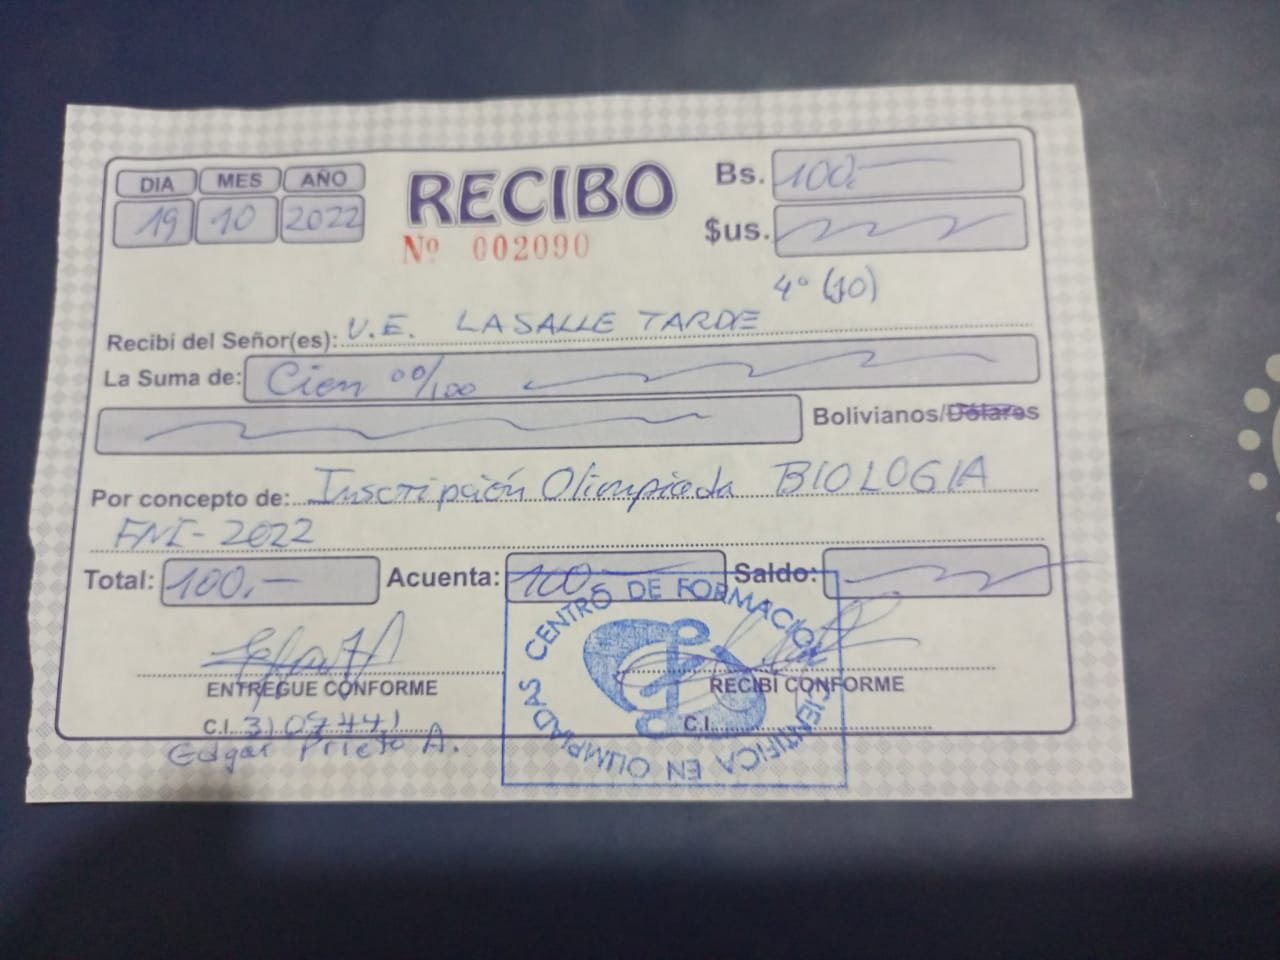 DIA MES AÑO
19 10 2022
RECIBO
Nº 002090
Bs. 100.-
$us.
4° (10)
Recibí del Señor(es): U.E. LASALLE TARDE
La Suma de: Cien 00/100
Bolivianos/Dólares
Por concepto de: Inscripción Olimpiada BIOLOGIA
FNI-2022
Total: 100.- Acuenta: 100 Saldo:
ENTREGUE CONFORME
C.I. 3107441
Edgar Prieto A.
RECIBÍ CONFORME
C.I.
CENTRO DE FORMACION CIENTIFICA EN OLIMPIADAS